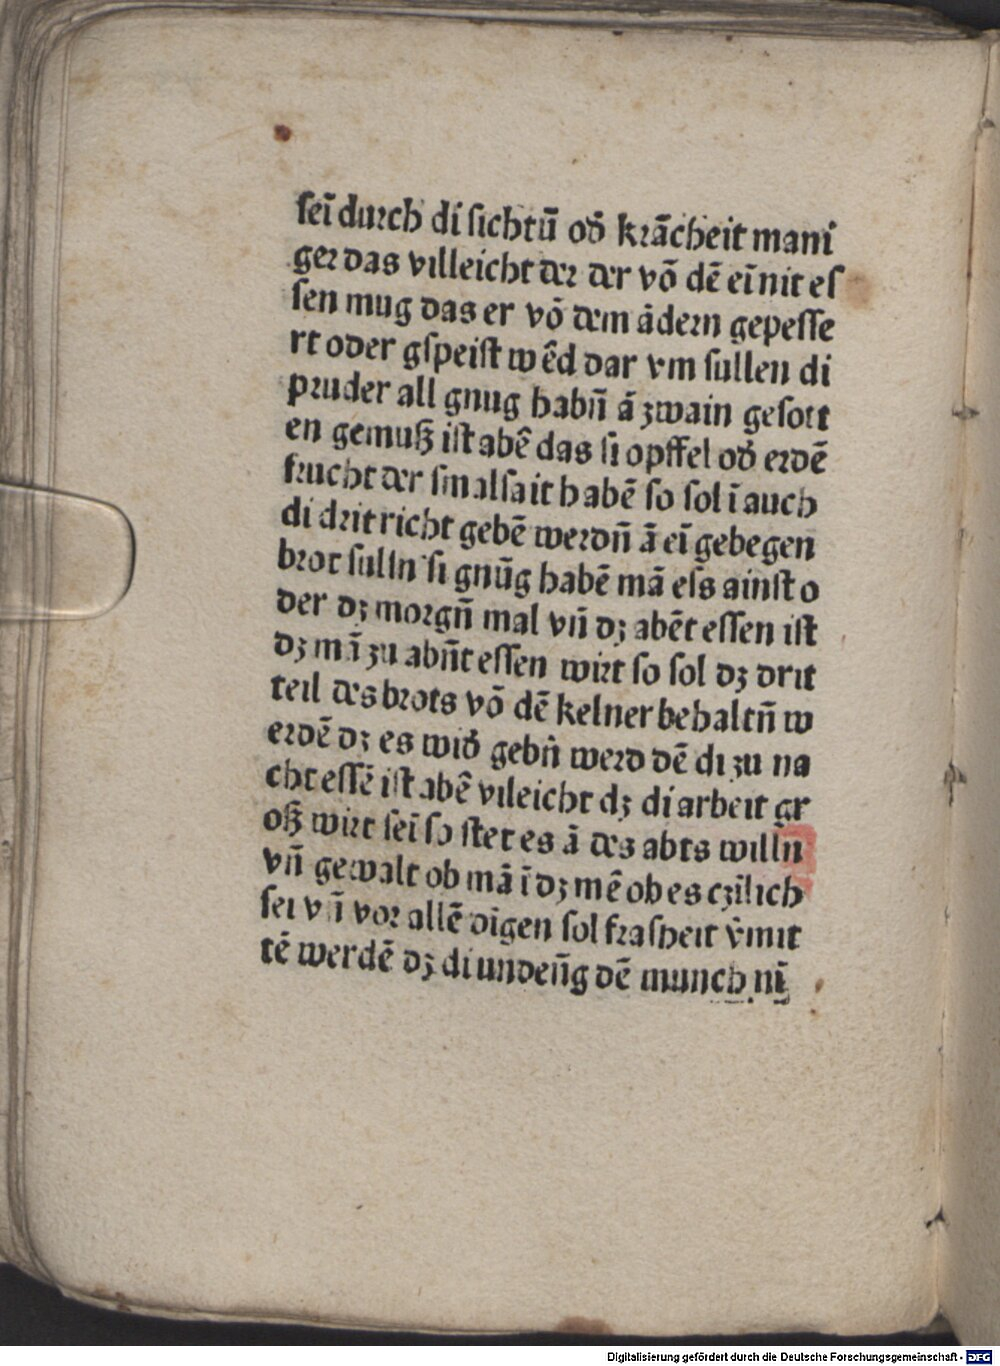 seī durch di sichtū od̄ krācheit mani
ger das villeicht der der vō dē eī nit es
sen mug das er vō dem ādern gepesse
rt oder gspeist wēd dar vm sullen di
pruder all gnug habn̄ ā zwain gesott
en gemuß ist abē das si opffel od̄ erdē
frucht der smalsait habē so sol ī auch
di drit richt gebē werdn̄ ā eī gebegen
brot sulln si gnūg habē mā ess ainst o
der dz morgn̄ mal vn̄ dz abēt essen ist
dz mā zu abn̄t essen wirt so sol dz drit
teil des brots vō dē kelner behaltn̄ w
erdē dz es wid̄ gebn̄ werd dē di zu na
cht essē ist abē vileicht dz di arbeit gr
oß wirt seī so stet es ā des abts willn̄
vn̄ gewalt ob mā ī dz mē ob es czīlich
sei v ī vor allē digen sol frasheit v̄mit
tē werdē dz di undeūg dē munch nī
Digitalisierung gefördert durch die Deutsche Forschungsgemeinschaft - DFG